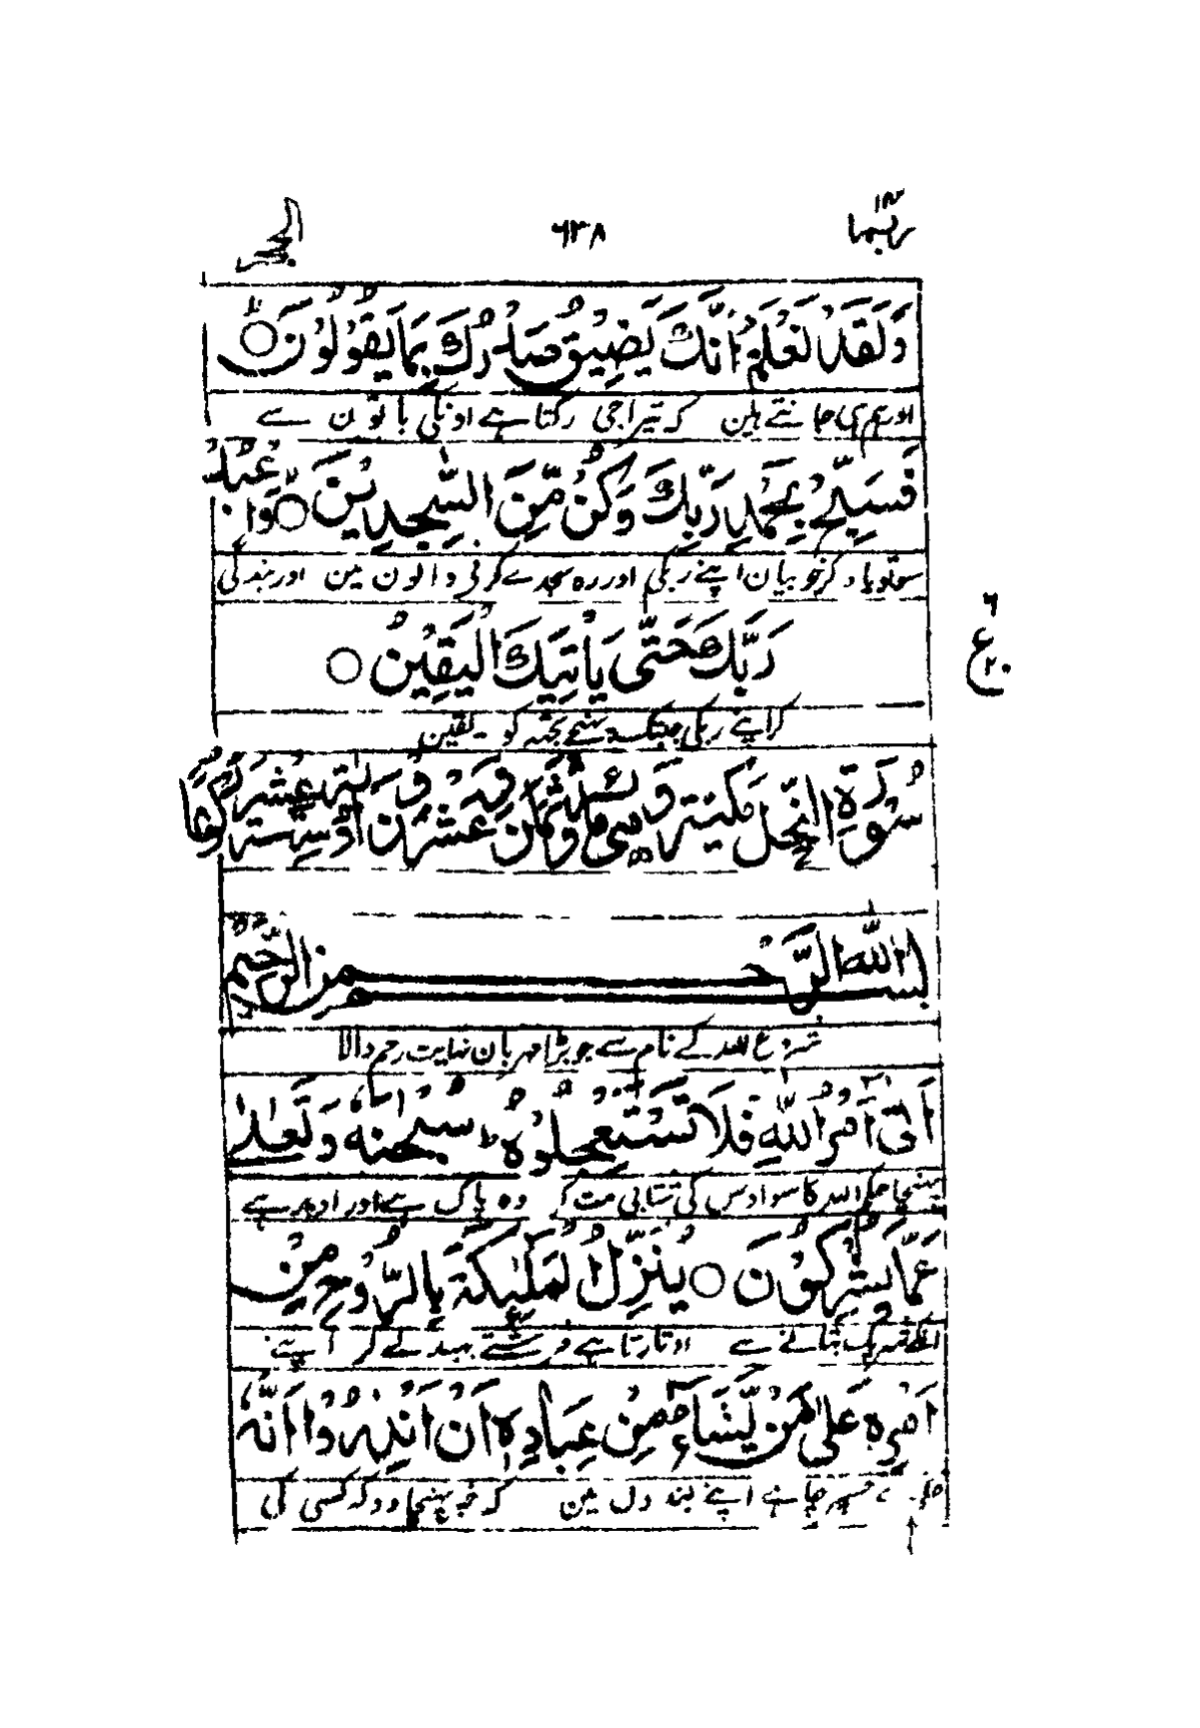 ربما ١٤ ٦٣٨ الحجر
وَلَقَدْ نَعْلَمُ اَنَّكَ يَضِيْقُ صَدْرُكَ بِمَا يَقُوْلُوْنَ ○
اور ہم ہی جانتے ہین کہ تیرا جی رکتا ہے اونکی باتون سے
فَسَبِّحْ بِحَمْدِ رَبِّكَ وَكُنْ مِّنَ السّٰجِدِيْنَ ○ وَاعْبُدْ
سو تو یاد کر خوبیان اپنے ربکی اور رہ سجدے کرنی والون مین اور بندگی
رَبَّكَ حَتّٰى يَاْتِيَكَ الْيَقِيْنُ ○
ع
کر اپنے ربکی جبتک پہنچے تجھہ کو یقین
سُوْرَةِ النَّحْلِ مَكِّيَّة وهى مائة وثمان وعشرون اية وستة عشر ركوعًا
بسم الله الرحمن الرحيم
شروع اللہ کے نام سے جو بڑا مہربان نہایت رحم والا
اَتٰٓى اَمْرُ اللّٰهِ فَلَا تَسْتَعْجِلُوْهُ ط سُبْحٰنَهٗ وَتَعٰلٰى
پہنچا حکم اللہ کا سو اوس کی شتابی مت کر وہ پاک ہے اور اوپر ہے
عَمَّا يُشْرِكُوْنَ ○ يُنَزِّلُ الْمَلٰٓئِكَةَ بِالرُّوْحِ مِنْ
انکے شریک بتانے سے اوتارتا ہے فرشتے بھید لے کر اپنے
اَمْرِهٖ عَلٰى مَنْ يَّشَآءُ مِنْ عِبَادِهٖٓ اَنْ اَنْذِرُوْٓا اَنَّهٗ
حکم سے جسپر چاہے اپنے بندون مین کہ خبر پہنچا دو کہ کسی کی